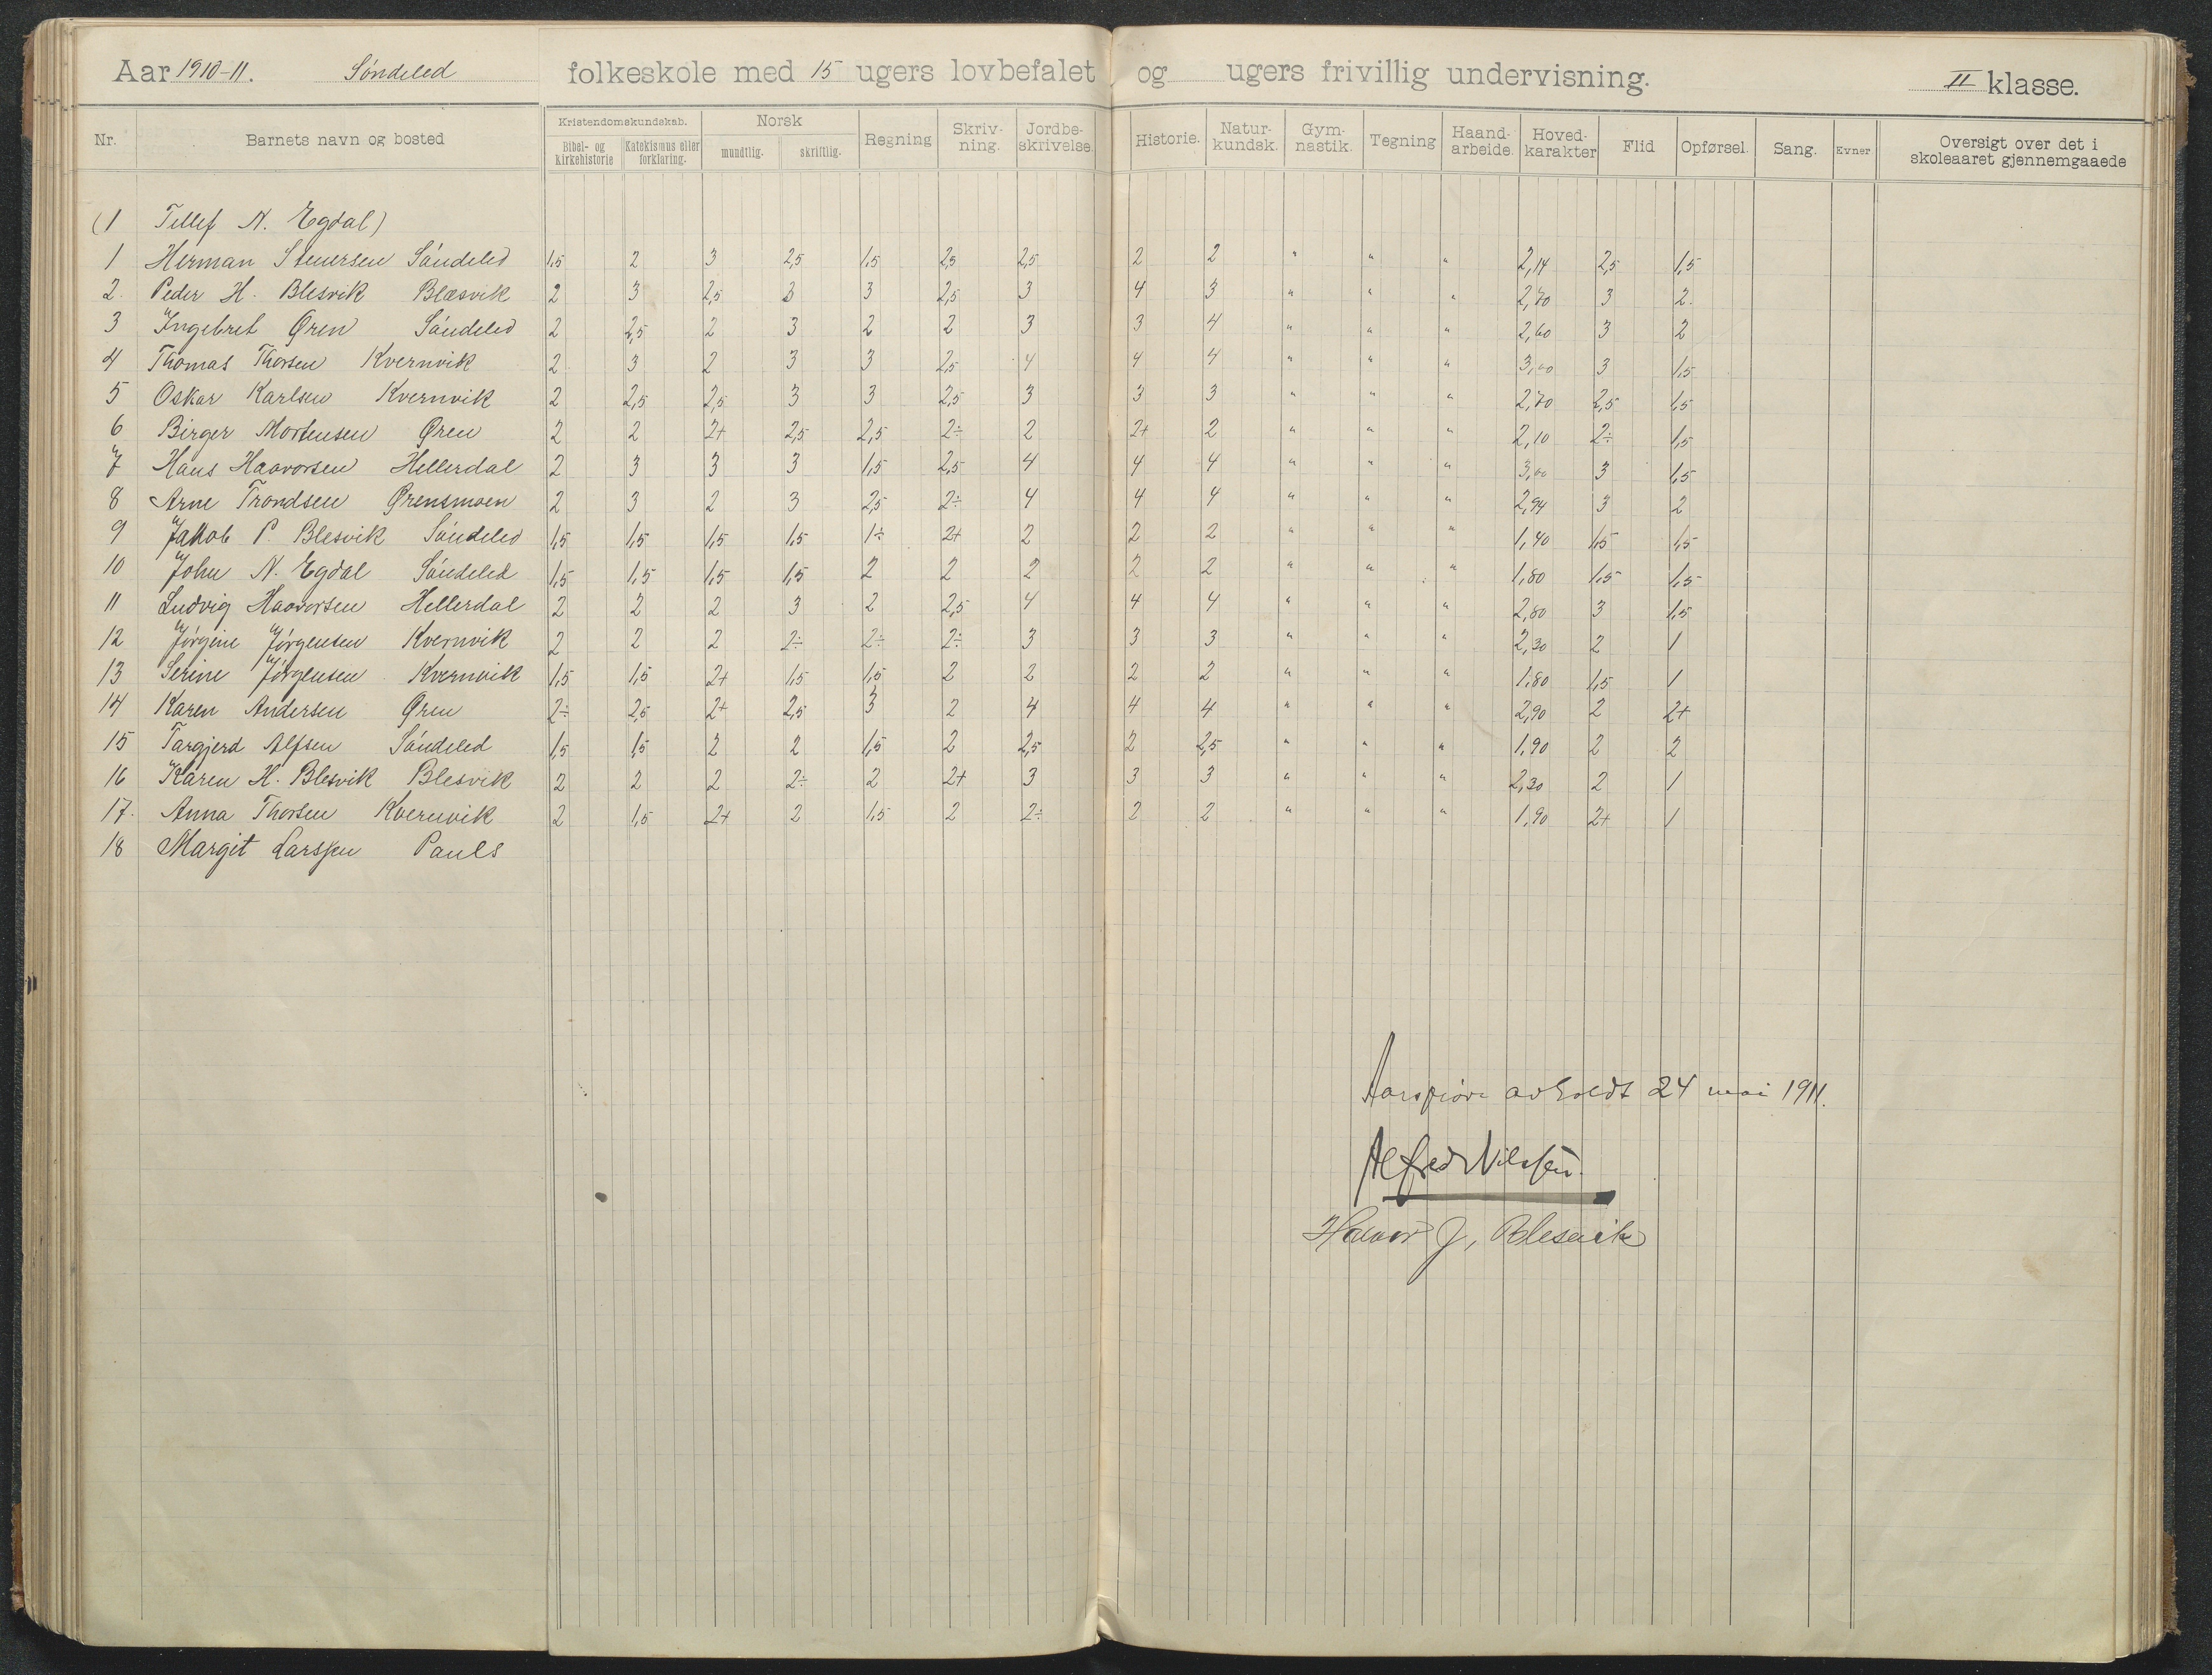 Aar 1910-11. Söndeled folkeskole med 15 ugers lovbefalet og ugers frivillig undervisning. II klasse.
Nr. Barnets navn og bosted Kristendomskundskab. Bibel- og kirkehistorie Katekismus eller forklaring. Norsk mundtlig. skriftlig. Regning Skriv-ning. Jordbe-skrivelse. Historie. Natur-kundsk. Gym-nastik. Tegning Haand-arbeide. Hoved-karakter Flid Opførsel. Sang. Evner Oversigt over det i skoleaaret gjennemgaaede
(1 Tellef N. Egdal)
1 Herman Steuersen Söndeled 1,5 2 3 2,5 1,5 2,5 2,5 2 2 " " " 2,14 2,5 1,5
2. Peder H. Blesvik Blæsvik 2 3 2,5 3 3 2,5 3 4 3 " " " 2,70 3 2.
3 Ingebret Øren Söndeled 2 2,5 2 3 2 2 3 3 4 " " " 2,60 3 2
4 Thomas Thorsen Kvernvik 2 3 2 3 3 2,5 4 4 4 " " " 3,00 3 1,5
5 Oskar Karlsen Kvernvik 2 2,5 2,5 3 3 2,5 3 3 3 " " " 2,70 2,5 1,5
6 Birger Mortensen Øren 2 2 2+ 2,5 2,5 2÷ 2 2+ 2 " " " 2,10 2÷ 1,5
7 Hans Haavorsen Hellerdal 2 3 3 3 1,5 2,5 4 4 4 " " " 3,00 3 1,5
8 Arne Trondsen Ørensmoen 2 3 2 3 2,5 2÷ 4 4 4 " " " 2,94 3 2
9 Jakob P. Blesvik Söndeled 1,5 1,5 1,5 1,5 1÷ 2+ 2 2 2 " " " 1,40 1,5 1,5
10 John N. Egdal Söndeled 1,5 1,5 1,5 1,5 2 2 2 2 2 " " " 1,80 1,5 1,5
11 Ludvig Haavorsen Hellerdal 2 2 2 3 2 2,5 4 4 4 " " " 2,80 3 1,5
12 Jörgine Jörgensen Kvernvik 2 2 2 2÷ 2÷ 2÷ 3 3 3 " " " 2,30 2 1
13 Serine Jörgensen Kvernvik 1,5 1,5 2+ 1,5 1,5 2 2 2 2 " " " 1,80 1,5 1
14 Karen Andersen Øren 2÷ 2,5 2+ 2,5 3 2 4 4 4 " " " 2,90 2 2+
15 Targjerd Alfsen Söndeled 1,5 1,5 2 2 1,5 2 2,5 2 2,5 " " " 1,90 2 2
16 Karen H. Blesvik Blesvik 2 2 2 2÷ 2 2+ 3 3 3 " " " 2,30 2 1
17. Anna Thorsen Kvernvik 2 1,5 2+ 2 1,5 2 2÷ 2 2 " " " 1,90 2+ 1
18 Margit Larssen Pauls
Aarsprøve avholdt 24 mai 1911.
Alfred Nilssen.
Halvor J, Blesvik